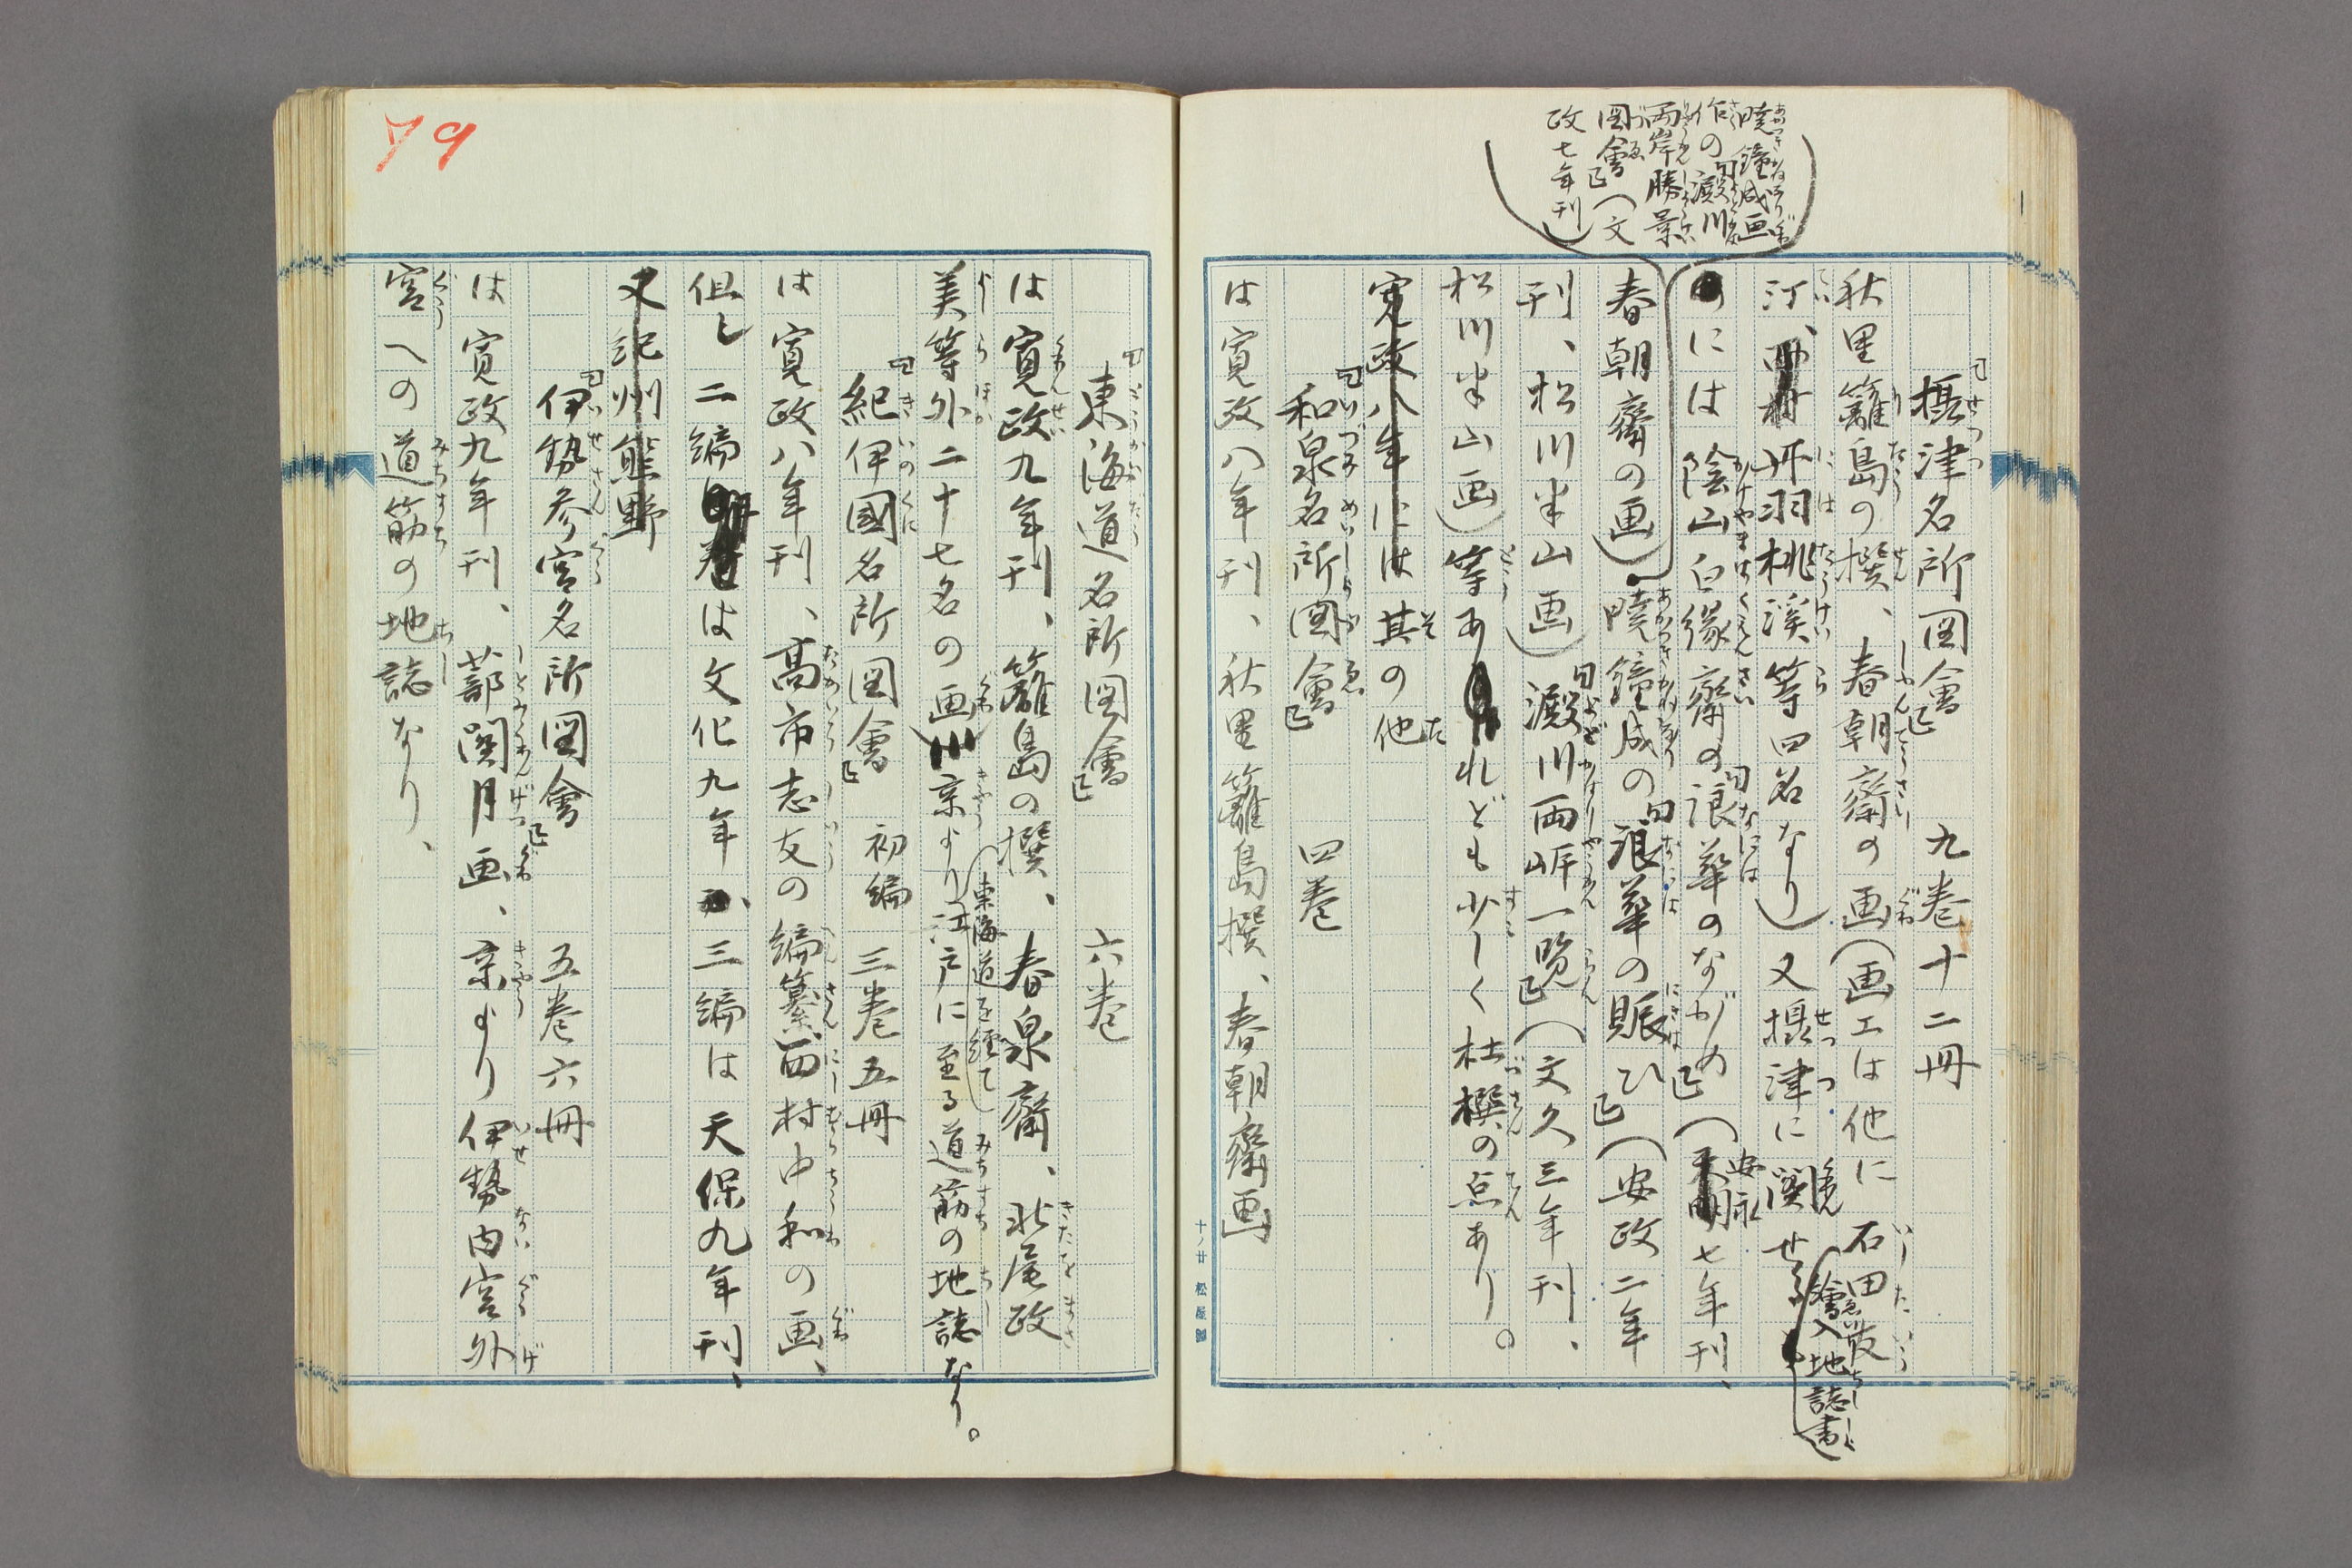 暁鐘成画
作の「澱川
両岸勝景
図會」(文
政七年刊)
「摂津名所図會」 九巻十二冊
秋里籬島の撰、春朝齋の画(画工は他に石田友
汀、西村丹羽桃溪等四名なり)又摂津に関せる繪入地誌書
には陰山白縁齋の「浪華のながめ」(安永七年刊、
春朝齋の画)暁鐘成の「浪華の賑ひ」(安政二年
刊、松川半山画)「澱川両岸一覧」(文久三年刊、
松川半山画)等あれども少しく杜撰の点あり。
寛政八年には其の他
「和泉名所図會」 四巻
は寛政八年刊、秋里籬島撰、春朝齋画
十ノ廿 松屋製
79
「東海道名所図會」 六巻
は寛政九年刊、籬島の撰、春泉齋、北尾政
美等外二十七名の画、京より東海道を経て江戸に至る道筋の地誌なり。
「紀伊國名所図會」初編 三巻五冊
は寛政八年刊、高市志友の編纂西村中和の画、
但し二編は文化九年、三編は天保九年刊、
又紀州熊野
「伊勢参宮名所図會」 五巻六冊
は寛政九年刊、蔀関月画、京より伊勢内宮外
宮への道筋の地誌なり、